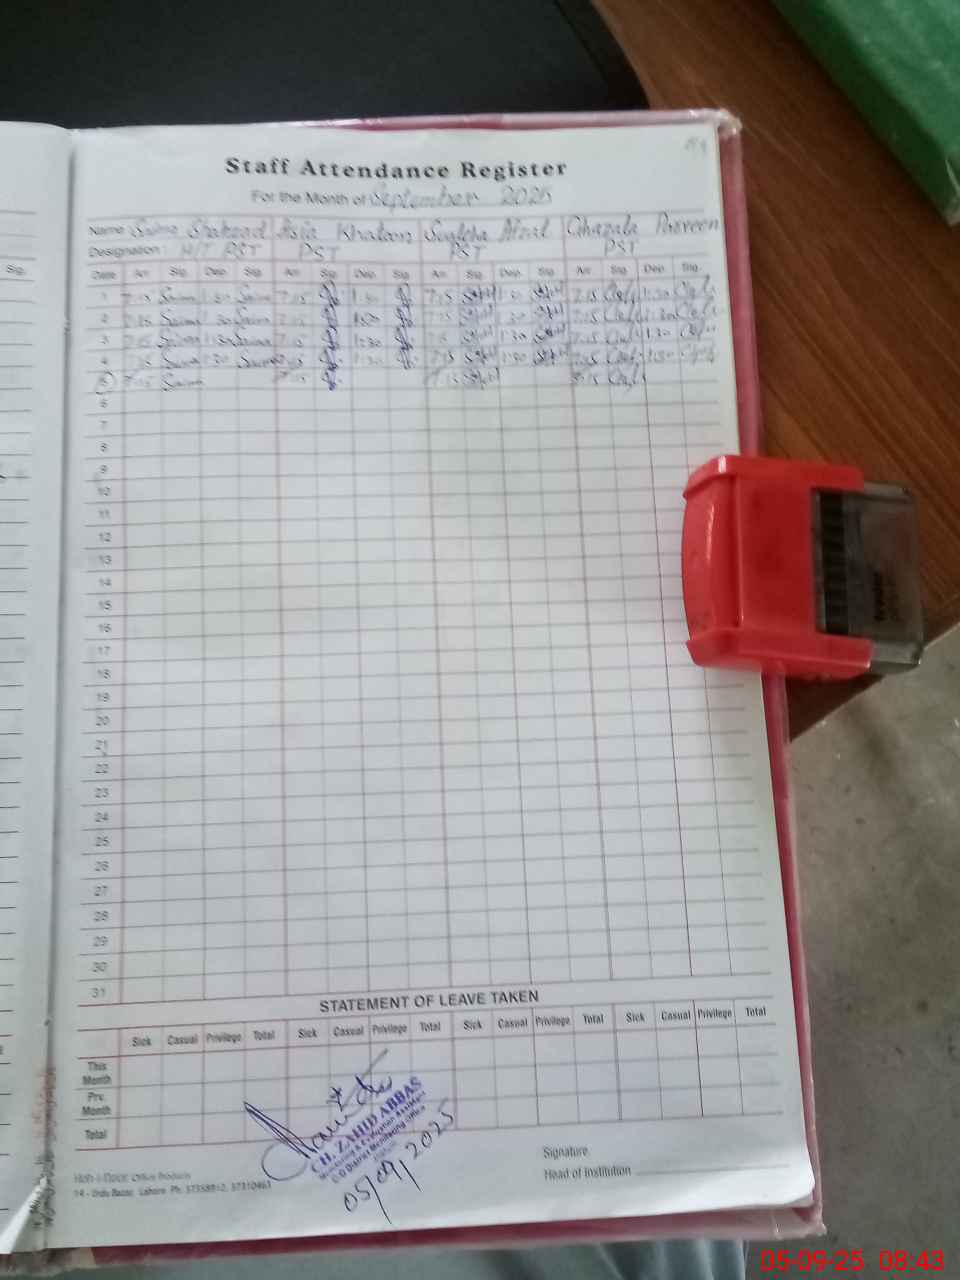 Staff Attendance Register
For the Month of September 2025
Name: Saima Shahzad Asia Khatoon Afzal Ghazala Parveen
Designation: H/T PST PST PST PST
Sig.
Date Arr. Sig. Dep. Sig. Arr. Sig. Dep. Sig. Arr. Sig. Dep. Sig. Arr. Sig. Dep. Sig.
1 7:15 Saima 1:30 Saima 7:15 1:30 7:15 1:30 7:15 1:30
2 7:15 Saima 1:30 Saima 7:15 1:30 7:15 1:30 7:15 1:30
3 7:15 Saima 1:30 Saima 7:15 1:30 7:15 1:30 7:15 1:30
4 7:15 Saima 1:30 Saima 7:15 1:30 7:15 1:30 7:15 1:30
5 7:15 Saima 7:15 7:15 7:15
6
7
8
9
10
11
12
13
14
15
16
17
18
19
20
21
22
23
24
25
26
27
28
29
30
31
STATEMENT OF LEAVE TAKEN
Sick Casual Privilege Total Sick Casual Privilege Total Sick Casual Privilege Total Sick Casual Privilege Total
This Month
Prv. Month
Total
CH. ZAHID ABBAS
Monitoring & Evaluation Assistant
O/O District Monitoring Office
05/09/2025
Signature
Head of Institution
Office Products
14 - Urdu Bazar, Lahore Ph: 37358812, 37310463
05-09-25 08:43